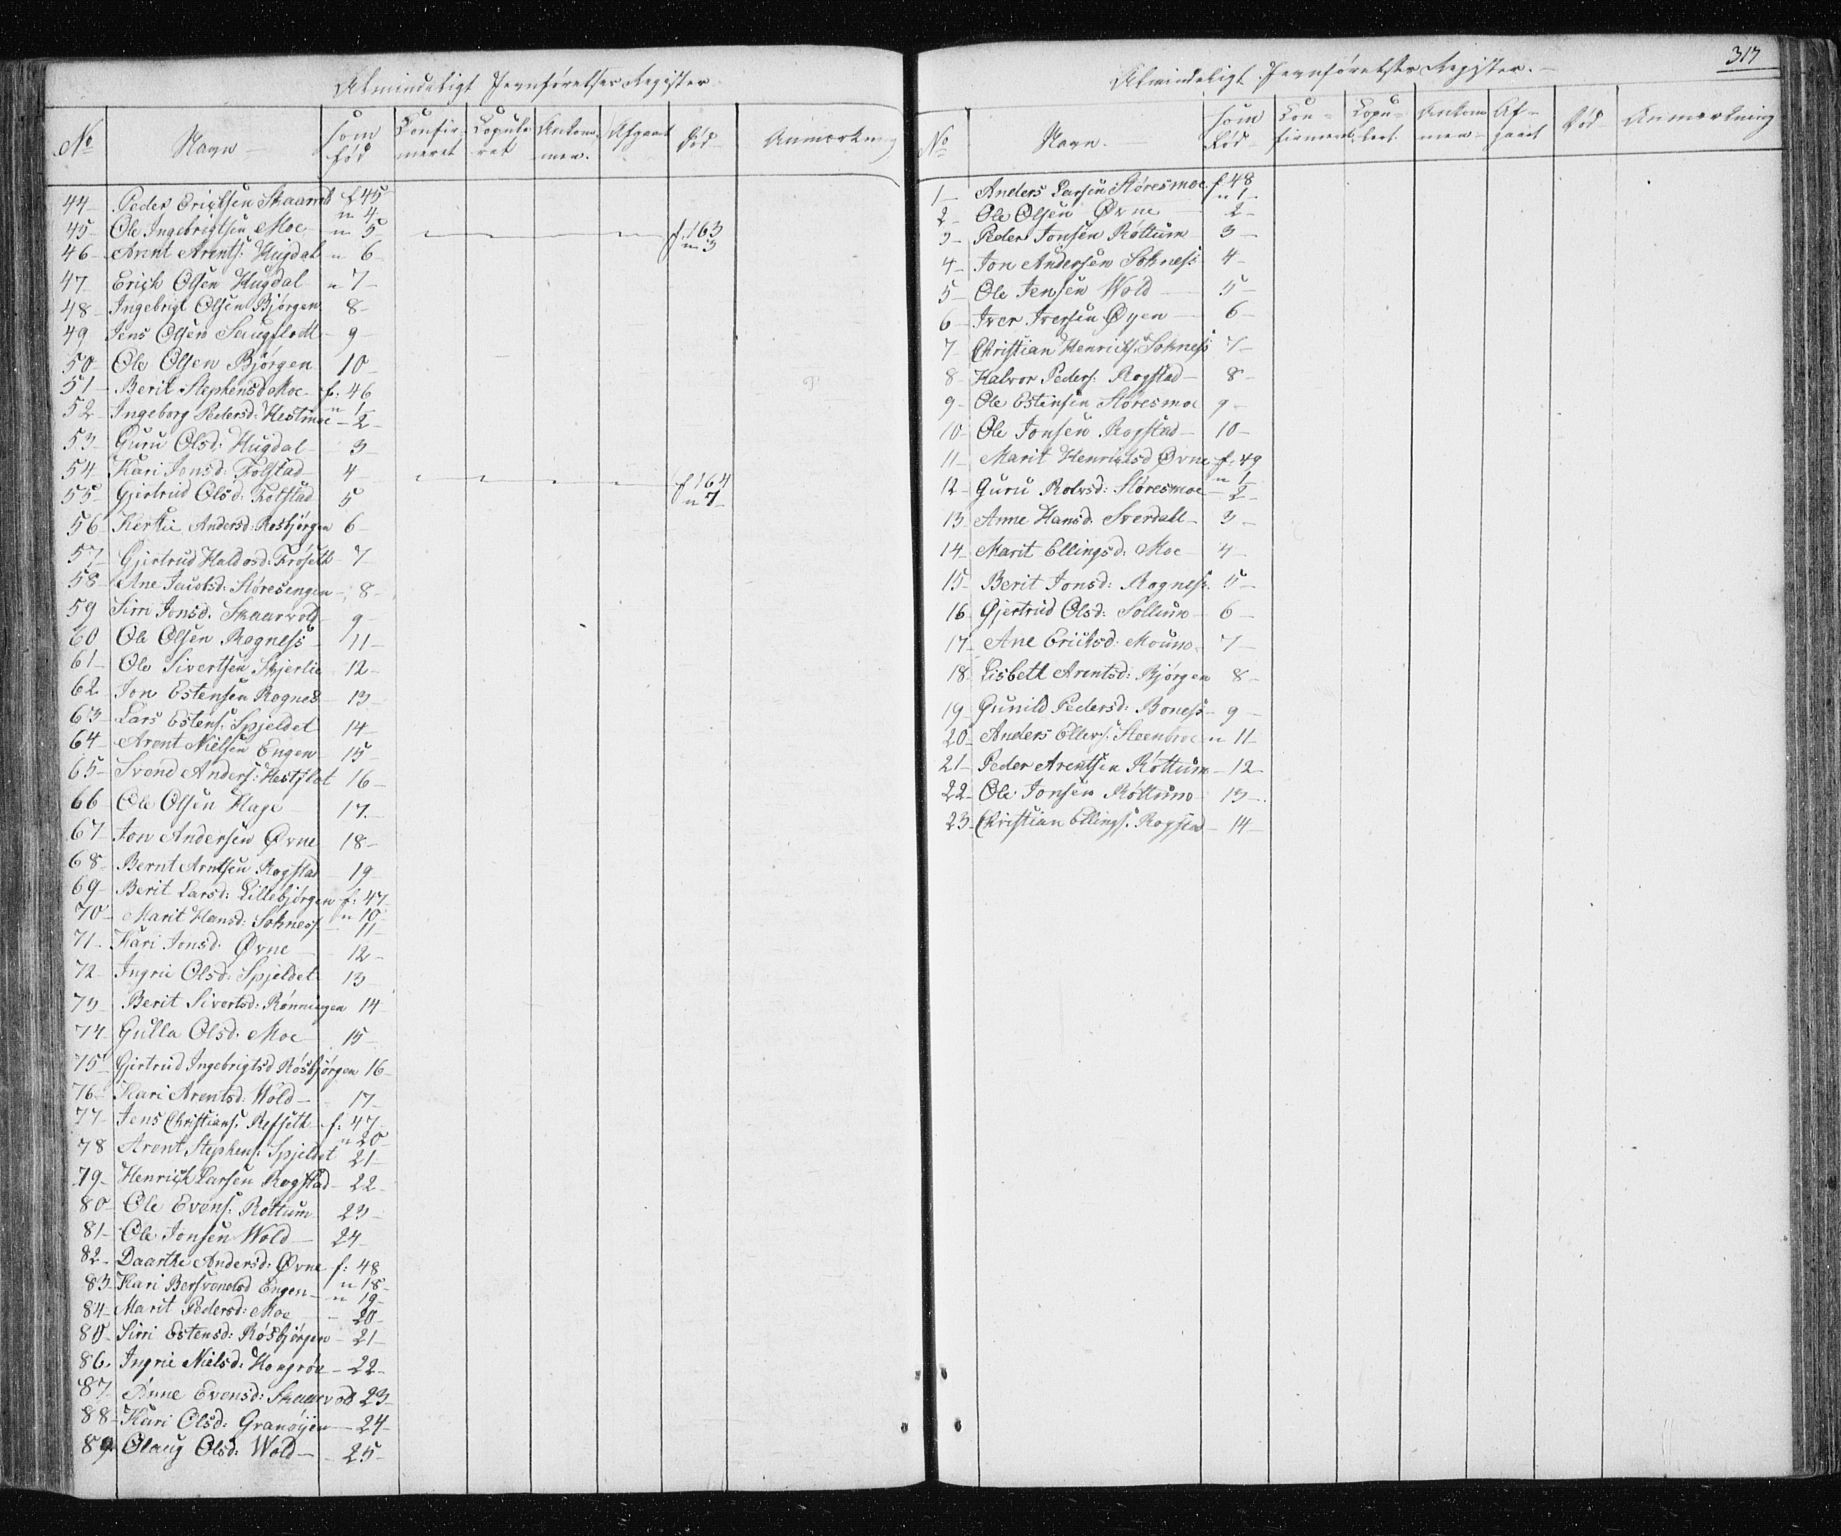 Almindeligt Jevnførelses Register
No Navn som fød Confirmeret Copuleret Ankommen Afgaaet Død Anmærkning
44 Peder Erichsen Skaarvold f. 45 n 4
45 Ole Ingebrigtsen Moe n 5 f. 163 n 3
46 Arent Arents: Hugdal n 6
47 Erich Olsen Hugdal n 7
48 Ingebrigt Olsen Bjørgen 8
49 Jens Olsen 9
50 Ole Olsen Bjørgen 10
51 Berit Stephensd Moe f. 46 n 1
52 Ingeborg Pedersd: Hestmoe 2
53 Guru Olsd: Hugdal 3
54 Kari Jonsd: Folstad 4
55 Gjertrud Olsd: Folstad 5 f 164 n 7
56 Kertie Andersd: Rosbjørgen 6
57 Gjertrud Haldosd: Frøseth 7
58 Ane Jacobsd: Støresengen 8
59 Sirri Jonsd: Skaarvold 9
60 Ole Olsen Rogness 11
61 Ole Sivertsen Skjerlie 12
62 Jon Estensen Rognes 13
63 Lars Estens: Spjeldet 14
64 Arent Nielsen Engen 15
65 Svend Anders: Hestflot 16
66 Ole Olsen Hage 17
67 Jon Andersen Øvne 18
68 Bernt Arntsen Rogstad 19
69 Berit Larsd: Lillebjørgen f. 47 n 10
70 Marit Hansd: Soknes 11
71 Kari Jonsd: Øvne 12
72 Ingrie Olsd: Spjeldet 13
73 Berit Sivertsd: Rønningen 14
74 Gulla Olsd: Moe 15
75 Gjertrud Ingebrigtsd Røsbjørgen 16
76 Kari Arentsd: Wold 17
77 Jens Christians: Refseth f. 47 n 20
78 Arent Stephens: Spjeldet 21
79 Henrich Larsen Rogstad 22
80 Ole Evens: Rottum 23
81 Ole Jonsen Wold 24
82 Daarthe Andersd: Øvne f. 48 n 18
83 Kari Bersvendsd Engen n 19
84 Marit Pedersd: Moe 20
85 Sirri Estensd: Røsbjørgen 21
86 Ingrie Nielsd: Hongrøe 22
87 Anne Evensd: Skaarvod 23
88 Kari Olsd: Granøyen 24
89 Olaug Olsd: Wold 25
317
Almindeligt Jevnførelses Register.
No Navn. som Fød Confirmeret Copuleret Ankommen Afgaaet Død Anmærkning
1 Anders Larsen Støresmoe f. 48 n 1
2 Ole Olsen Øvne 2
3 Peder Jonsen Røttum 3
4 Jon Andersen Sokness 4
5 Ole Jensen Wold 5
6 Iver Iversen Øyen 6
7 Christian Henrichs: Sokness 7
8 Halvor Peders: Rogstad 8
9 Ole Estensen Støresmoe 9
10 Ole Jonsen Rogstad 10
11 Marit Henrichsd Øvne f. 49 n 1
12 Guru Rolvsd: Støresmoe 2
13 Anne Hansd. Sverdal 3
14 Marit Ellingsd: Moe 4
15 Berit Jonsd: Rogness 5
16 Gjertrud Olsd: Sollum 6
17 Ane Erichsd: Moumo 7
18 Lisbeth Arentsd: Bjørgen 8
19 Gunild Pedersd: Boness 9
20 Anders Ellevs: Steenbroe n 11
21 Peder Arentsen Røttum 12
22 Ole Jonsen Røttum 13
23 Christian Ellings: Rogstad 14